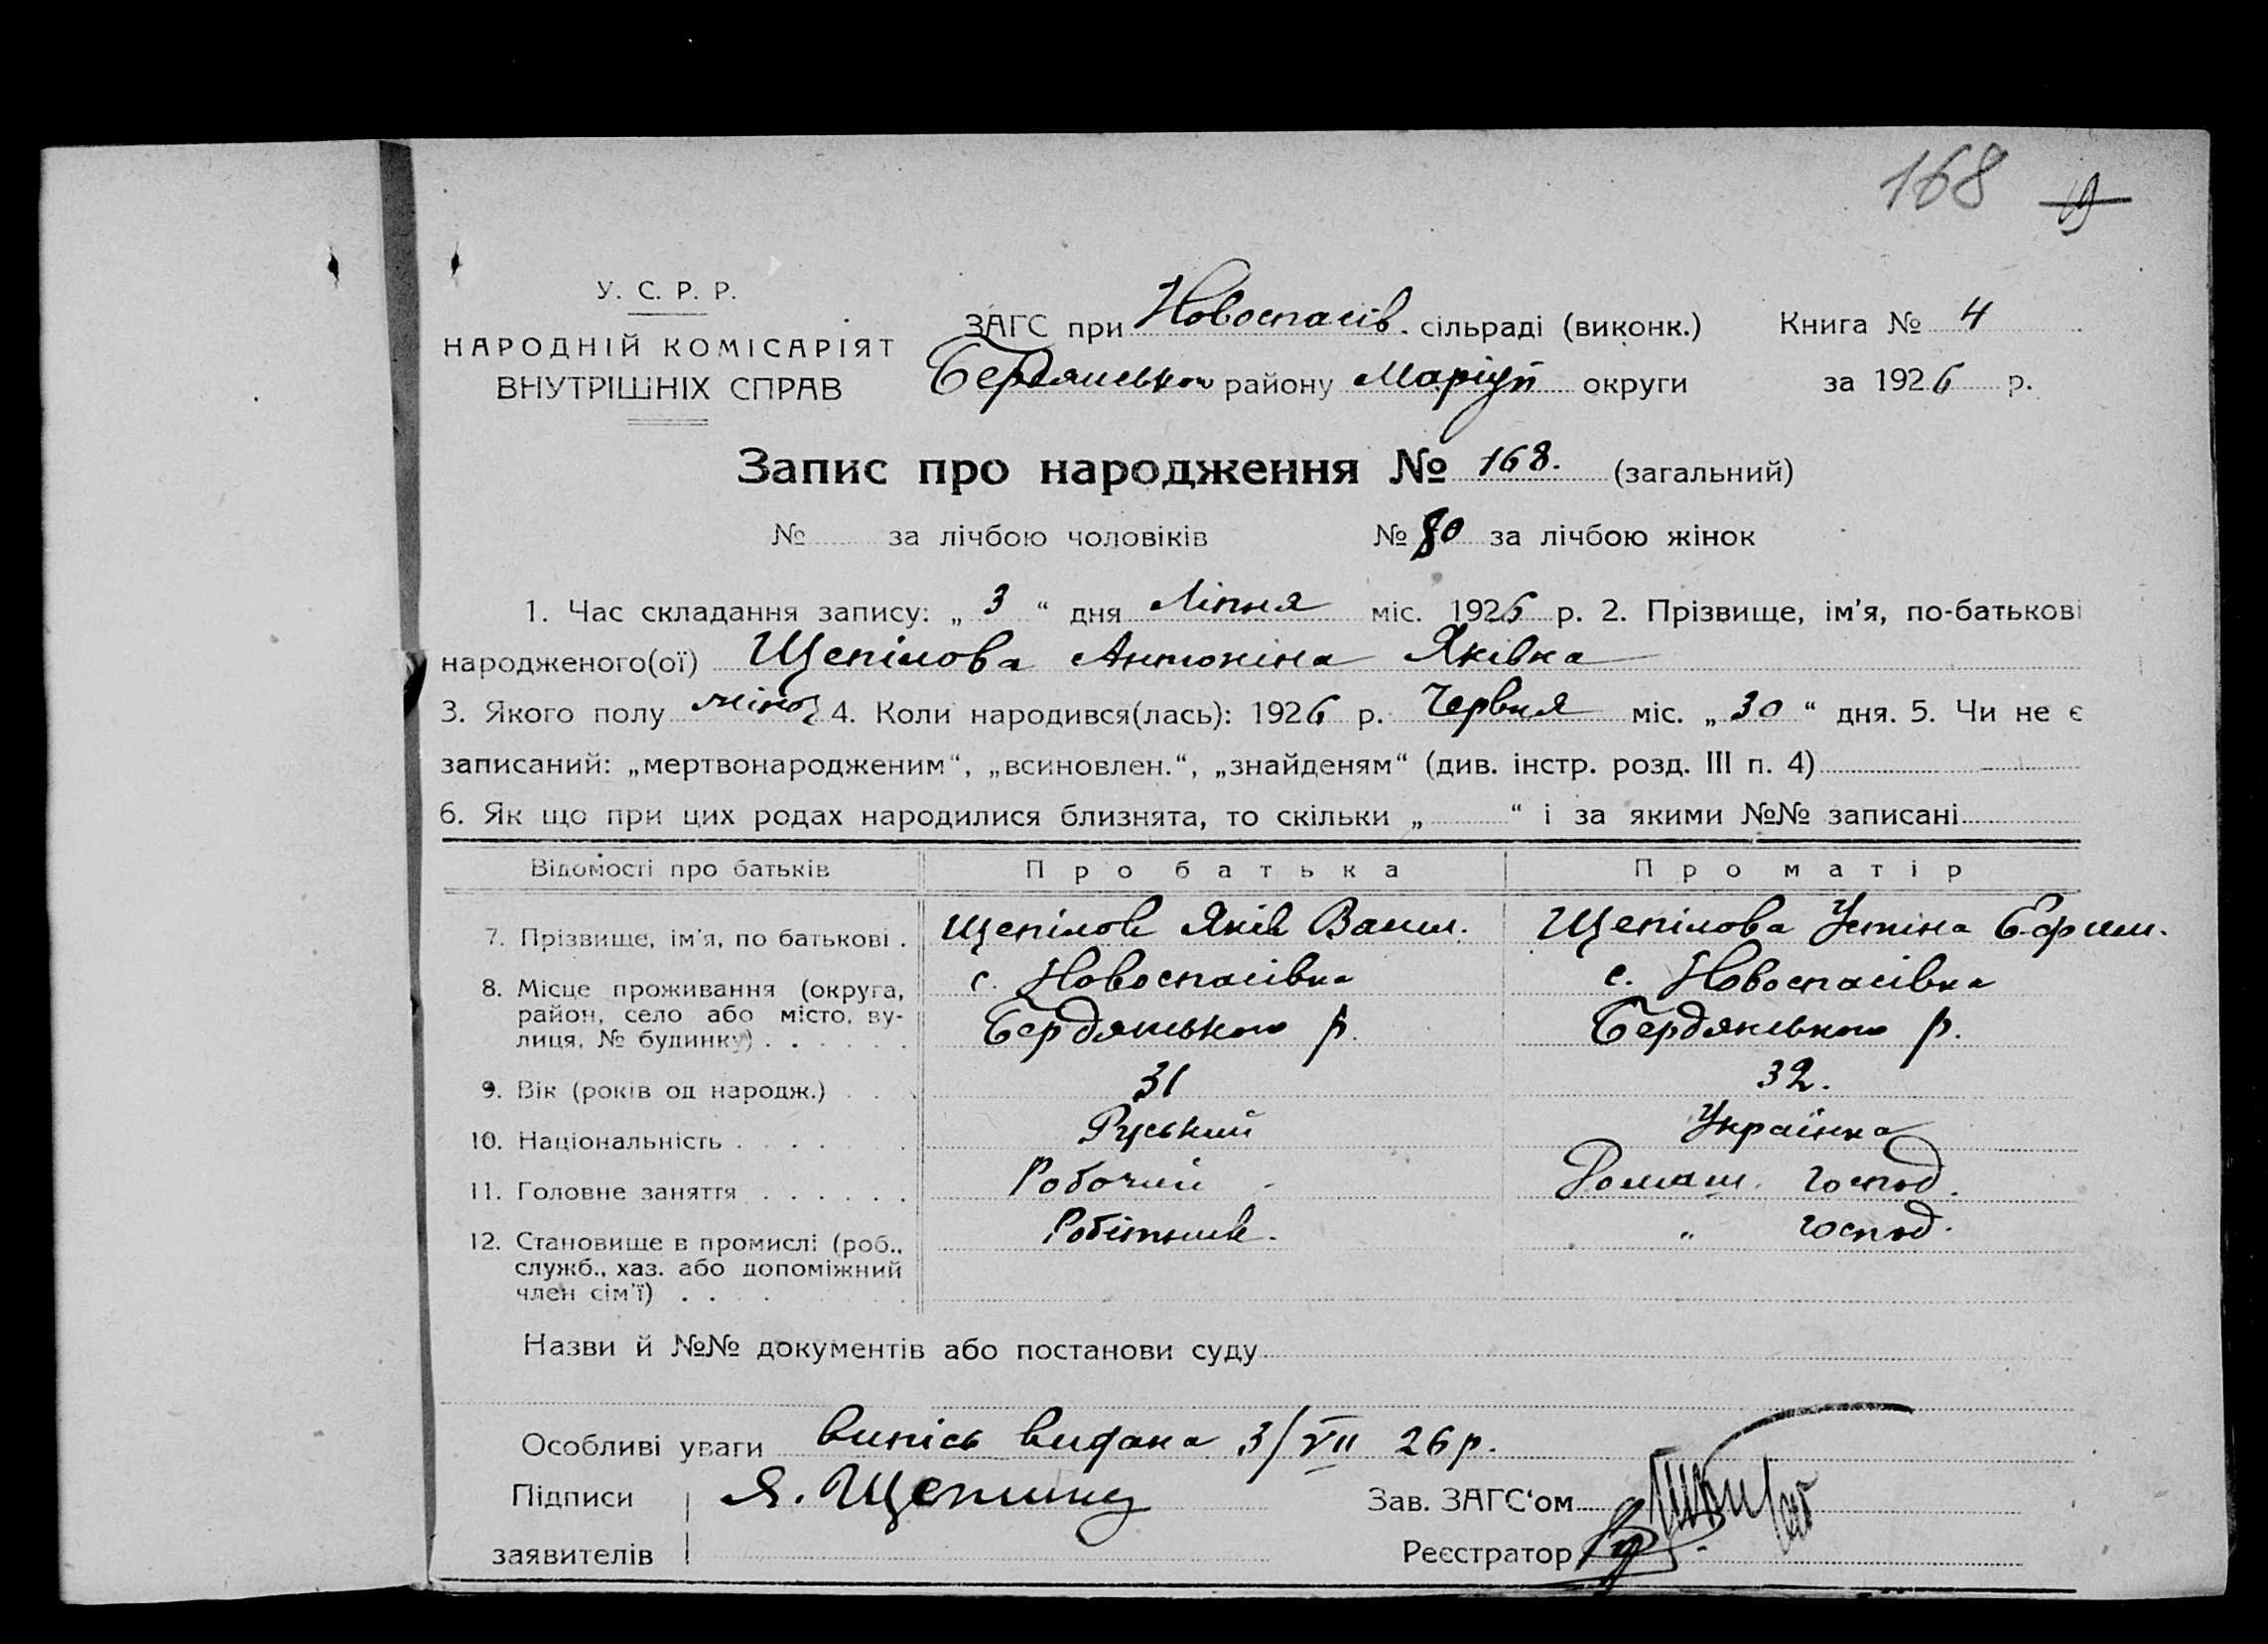 168 19
У. С. Р. Р.
НАРОДНІЙ КОМІСАРІЯТ
ВНУТРІШНІХ СПРАВ
ЗАГС при Новоспасів. сільраді (виконк.) Книга № 4
Бердянського району Маріуп округи за 1926 р.
Запис про народження № 168. (загальний)
№ за лічбою чоловіків № 80 за лічбою жінок
1. Час складання запису: „ 3 “ дня Ліпня міс. 1926 р. 2. Прізвище, ім'я, по-батькові
народженого(ої) Щепілова Антоніна Яківна
3. Якого полу жіноч 4. Коли народився(лась): 1926 р. Червня міс. „ 30 “ дня. 5. Чи не є
записаний: „мертвонародженим“, „всиновлен.“, „знайденям“ (див. інстр. розд. III п. 4)
6. Як що при цих родах народилися близнята, то скільки „ “ і за якими №№ записані
Відомості про батьків Про батька Про матір
7. Прізвище, ім'я, по батькові . Щепілов Яків Васил. Щепілова Устіна Ефим.
8. Місце проживання (округа, район, село або місто, вулиця, № будинку) с. Новоспасівка Бердянського р. с. Новоспасівка Бердянського р.
9. Вік (років од народж.) 31 32.
10. Національність Руський Українка
11. Головне заняття Робочий Домаш. господ.
12. Становище в промислі (роб., служб., хаз. або допоміжний член сім'ї) Робітник. „ господ.
Назви й №№ документів або постанови суду
Особливі уваги випісь видана 3/VII 26 р.
Підписи Я. Щепили Зав. ЗАГС‘ом
заявителів Реєстратор